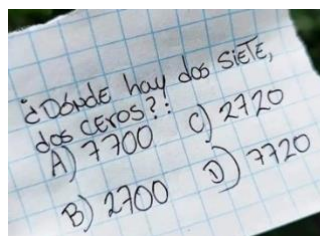 ¿DóNdE hay dos SiETE,
dos CEROS?:
A) 7700 C) 2720
B) 2700 D) 7720